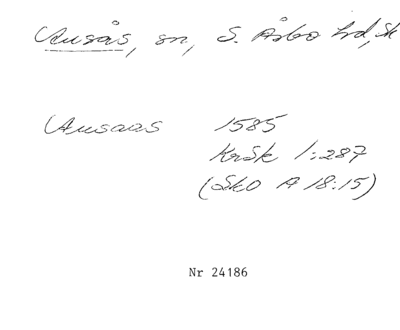 Ausås, sn, S. Åsbo hd, Sk
Ausaas 1585
KrSk 1:287
(SkO A 18:15)
Nr 24186